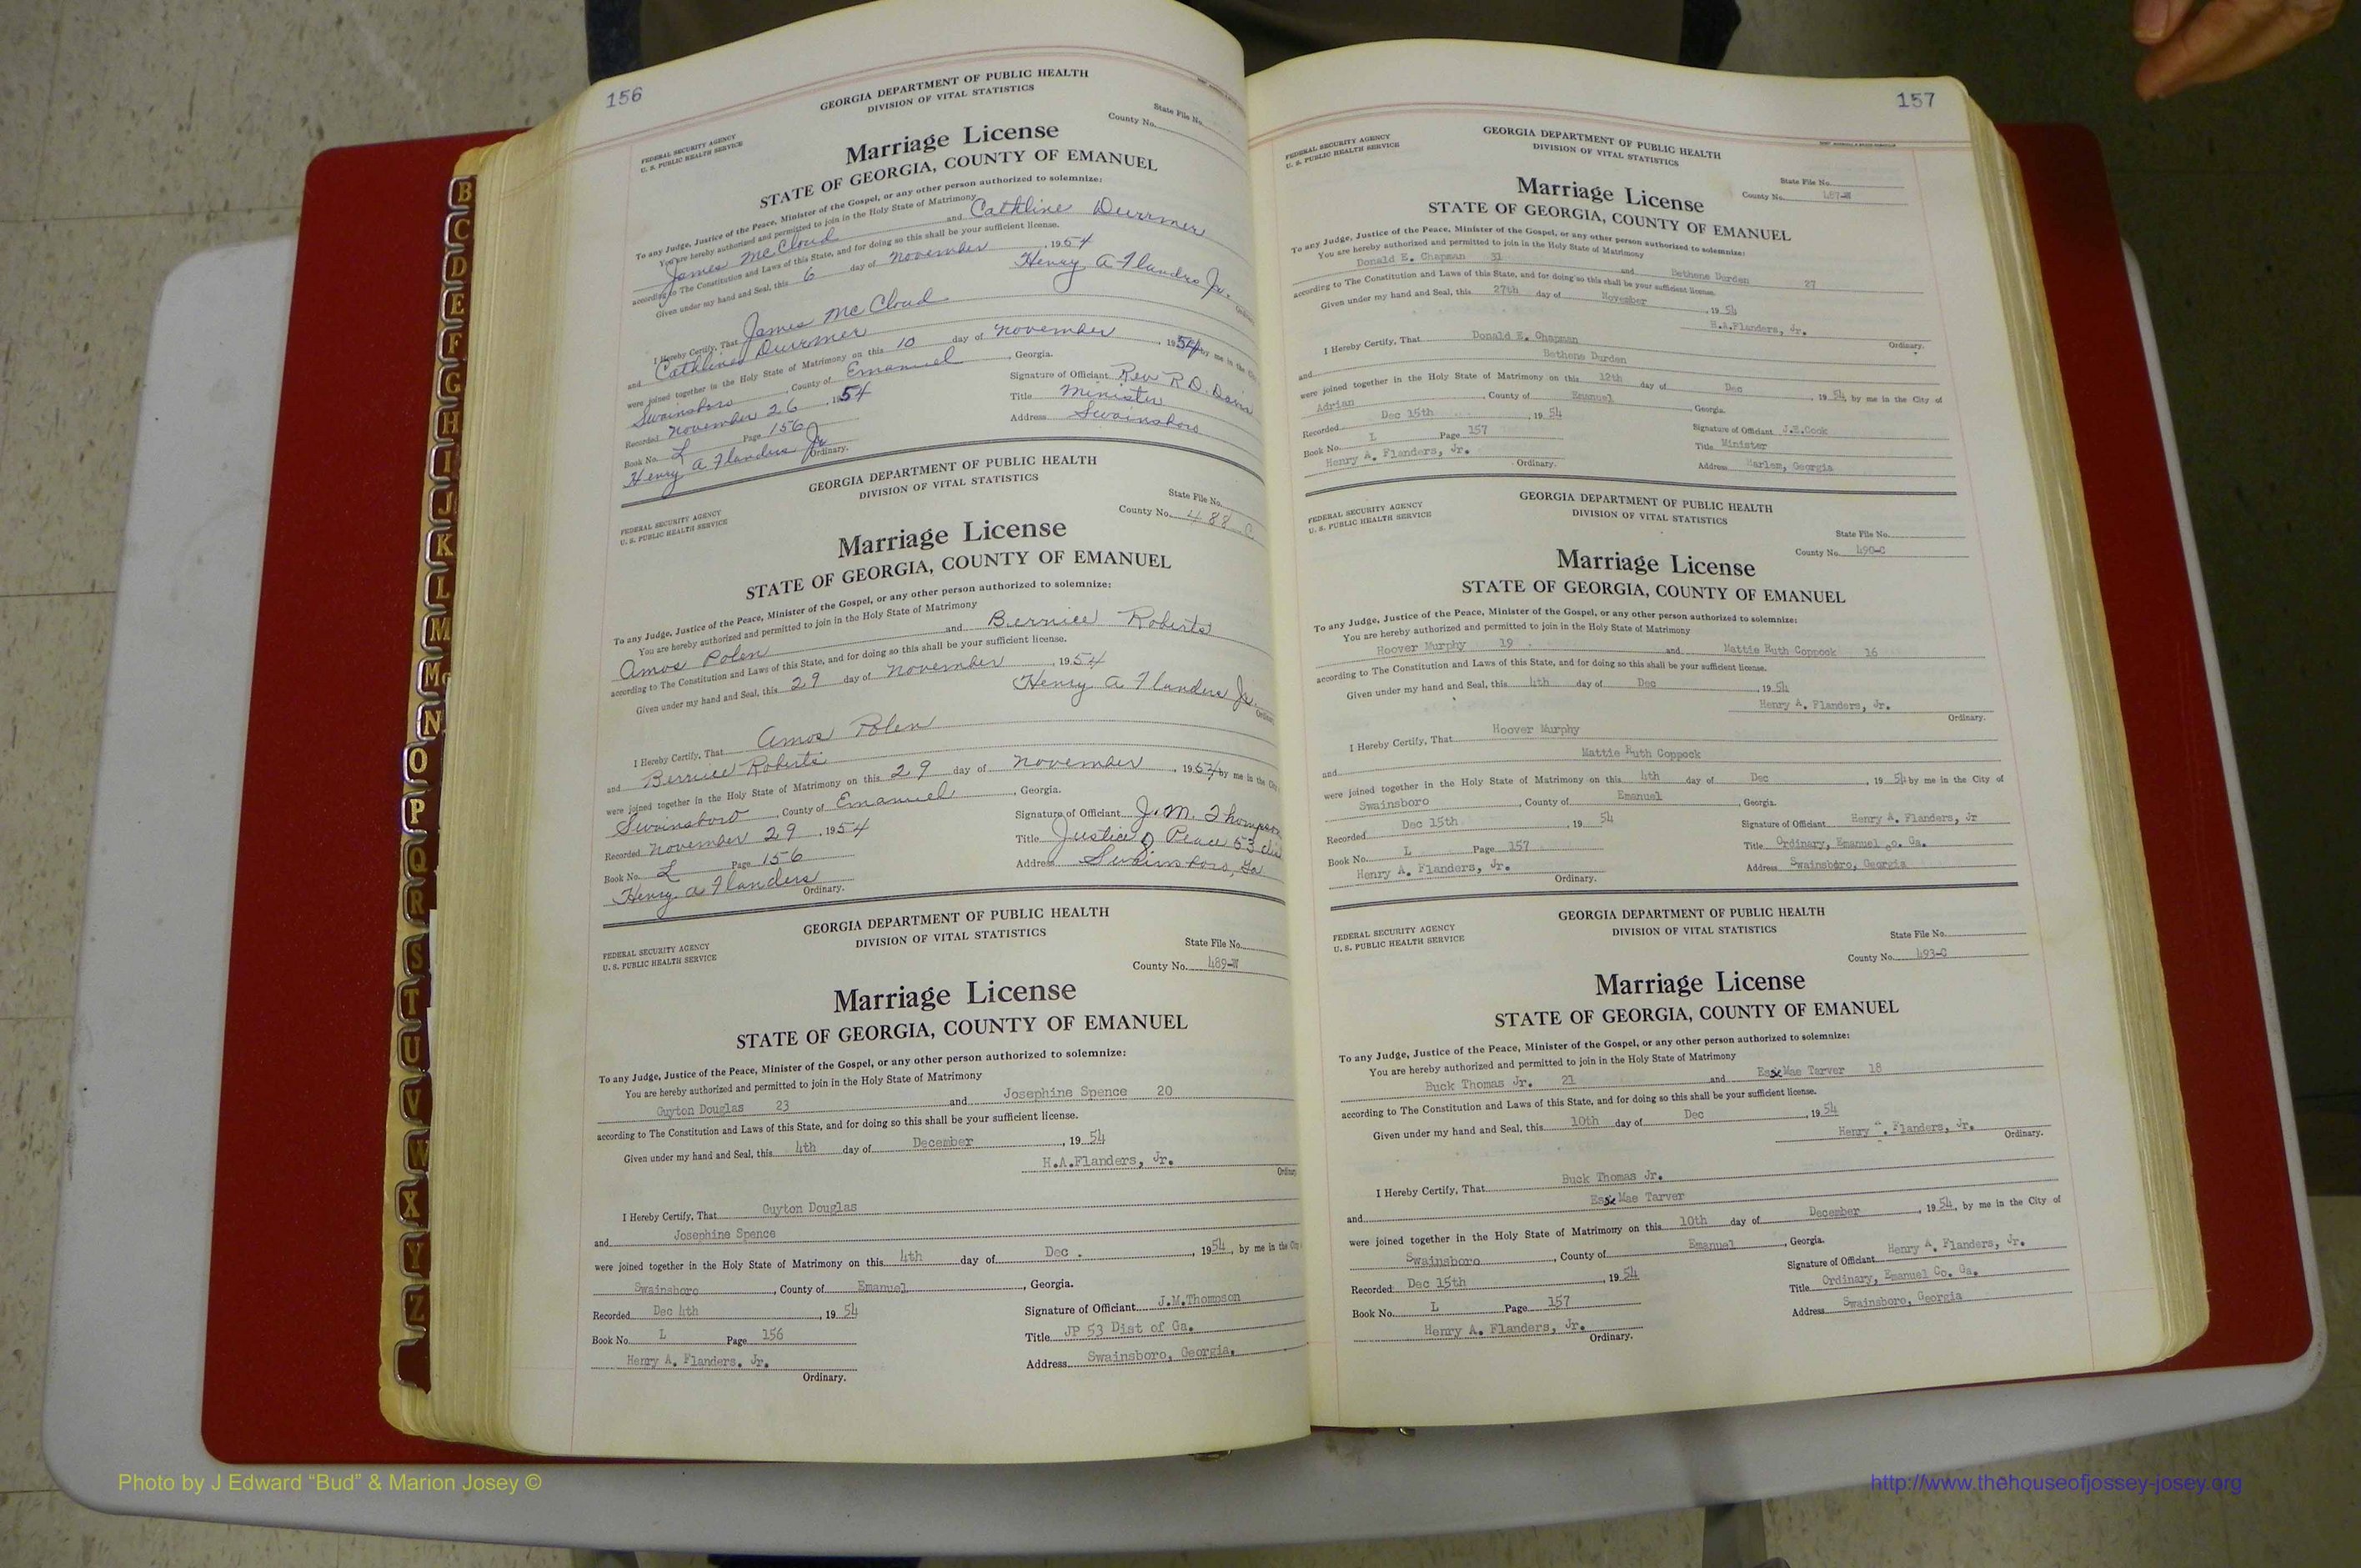 156
GEORGIA DEPARTMENT OF PUBLIC HEALTH
DIVISION OF VITAL STATISTICS
FEDERAL SECURITY AGENCY
U. S. PUBLIC HEALTH SERVICE
State File No.
County No.
Marriage License
STATE OF GEORGIA, COUNTY OF EMANUEL
To any Judge, Justice of the Peace, Minister of the Gospel, or any other person authorized to solemnize:
You are hereby authorized and permitted to join in the Holy State of Matrimony
James McCloud and Cathline Durrmer
according to The Constitution and Laws of this State, and for doing so this shall be your sufficient license.
Given under my hand and Seal, this 6 day of November, 1954
Henry A Flanders Jr.
I Hereby Certify, That James McCloud
and Cathline Durrmer
were joined together in the Holy State of Matrimony on this 10 day of November, 1954 by me in the City
Swainsboro, County of Emanuel, Georgia.
Recorded November 26, 1954
Signature of Officiant Rev R.D. Davis
Title Minister
Book No. L Page 156
Address Swainsboro
Henry A Flanders Jr
Ordinary.
GEORGIA DEPARTMENT OF PUBLIC HEALTH
DIVISION OF VITAL STATISTICS
FEDERAL SECURITY AGENCY
U. S. PUBLIC HEALTH SERVICE
State File No.
County No. 488-C
Marriage License
STATE OF GEORGIA, COUNTY OF EMANUEL
To any Judge, Justice of the Peace, Minister of the Gospel, or any other person authorized to solemnize:
You are hereby authorized and permitted to join in the Holy State of Matrimony
Amos Polen and Bernice Roberts
according to The Constitution and Laws of this State, and for doing so this shall be your sufficient license.
Given under my hand and Seal, this 29 day of November, 1954
Henry A Flanders Jr.
I Hereby Certify, That Amos Polen
and Bernice Roberts
were joined together in the Holy State of Matrimony on this 29 day of November, 1954 by me in the City
Swainsboro, County of Emanuel, Georgia.
Recorded November 29, 1954
Signature of Officiant J.M. Thompson
Title Justice of Peace 53 dis
Book No. L Page 156
Address Swainsboro, Ga
Henry A Flanders
Ordinary.
GEORGIA DEPARTMENT OF PUBLIC HEALTH
DIVISION OF VITAL STATISTICS
FEDERAL SECURITY AGENCY
U. S. PUBLIC HEALTH SERVICE
State File No.
County No. 489-W
Marriage License
STATE OF GEORGIA, COUNTY OF EMANUEL
To any Judge, Justice of the Peace, Minister of the Gospel, or any other person authorized to solemnize:
You are hereby authorized and permitted to join in the Holy State of Matrimony
Guyton Douglas 23 and Josephine Spence 20
according to The Constitution and Laws of this State, and for doing so this shall be your sufficient license.
Given under my hand and Seal, this 4th day of December, 1954
H.A.Flanders, Jr.
I Hereby Certify, That Guyton Douglas
and Josephine Spence
were joined together in the Holy State of Matrimony on this 4th day of Dec., 1954, by me in the City
Swainsboro, County of Emanuel, Georgia.
Recorded Dec 4th, 1954
Signature of Officiant J.M.Thompson
Book No. L Page 156
Title JP 53 Dist of Ga.
Henry A. Flanders. Jr.
Address Swainsboro, Georgia.
Ordinary.
157
GEORGIA DEPARTMENT OF PUBLIC HEALTH
DIVISION OF VITAL STATISTICS
FEDERAL SECURITY AGENCY
U. S. PUBLIC HEALTH SERVICE
State File No.
County No. 487-W
Marriage License
STATE OF GEORGIA, COUNTY OF EMANUEL
To any Judge, Justice of the Peace, Minister of the Gospel, or any other person authorized to solemnize:
You are hereby authorized and permitted to join in the Holy State of Matrimony
Donald E. Chapman 31 and Bethene Durden 27
according to The Constitution and Laws of this State, and for doing so this shall be your sufficient license.
Given under my hand and Seal, this 27th day of November, 1954
H.A.Flanders, Jr.
Ordinary.
I Hereby Certify, That Donald E. Chapman
and Bethene Durden
were joined together in the Holy State of Matrimony on this 12th day of Dec, 1954, by me in the City of
Adrian, County of Emanuel, Georgia.
Recorded Dec 15th, 1954
Signature of Officiant J.E.Cook
Book No. L Page 157
Title Minister
Henry A. Flanders, Jr.
Address Harlem, Georgia
Ordinary.
GEORGIA DEPARTMENT OF PUBLIC HEALTH
DIVISION OF VITAL STATISTICS
FEDERAL SECURITY AGENCY
U. S. PUBLIC HEALTH SERVICE
State File No.
County No. 490-C
Marriage License
STATE OF GEORGIA, COUNTY OF EMANUEL
To any Judge, Justice of the Peace, Minister of the Gospel, or any other person authorized to solemnize:
You are hereby authorized and permitted to join in the Holy State of Matrimony
Hoover Murphy 19 and Mattie Ruth Coppock 16
according to The Constitution and Laws of this State, and for doing so this shall be your sufficient license.
Given under my hand and Seal, this 4th day of Dec, 1954
Henry A. Flanders, Jr.
Ordinary.
I Hereby Certify, That Hoover Murphy
and Mattie Ruth Coppock
were joined together in the Holy State of Matrimony on this 4th day of Dec, 1954 by me in the City of
Swainsboro, County of Emanuel, Georgia.
Recorded Dec 15th, 1954
Signature of Officiant Henry A. Flanders, Jr
Book No. L Page 157
Title Ordinary, Emanuel Co. Ga.
Henry A. Flanders, Jr.
Address Swainsboro, Georgia
Ordinary.
GEORGIA DEPARTMENT OF PUBLIC HEALTH
DIVISION OF VITAL STATISTICS
FEDERAL SECURITY AGENCY
U. S. PUBLIC HEALTH SERVICE
State File No.
County No. 493-C
Marriage License
STATE OF GEORGIA, COUNTY OF EMANUEL
To any Judge, Justice of the Peace, Minister of the Gospel, or any other person authorized to solemnize:
You are hereby authorized and permitted to join in the Holy State of Matrimony
Buck Thomas Jr. 21 and Mae Tarver 18
according to The Constitution and Laws of this State, and for doing so this shall be your sufficient license.
Given under my hand and Seal, this 10th day of Dec, 1954
Henry A. Flanders, Jr.
Ordinary.
I Hereby Certify, That Buck Thomas Jr.
and Mae Tarver
were joined together in the Holy State of Matrimony on this 10th day of December, 1954, by me in the City of
Swainsboro, County of Emanuel, Georgia.
Recorded Dec 15th, 1954
Signature of Officiant Henry A. Flanders, Jr.
Book No. L Page 157
Title Ordinary, Emanuel Co. Ga.
Henry A. Flanders, Jr.
Address Swainsboro, Georgia
Ordinary.
B
C
D
E
F
G
H
I
J
K
L
M
Mc
N
O
P
Q
R
S
T
U
V
W
X
Y
Z
Photo by J Edward “Bud” & Marion Josey ©
http://www.thehouseofjossey-josey.org